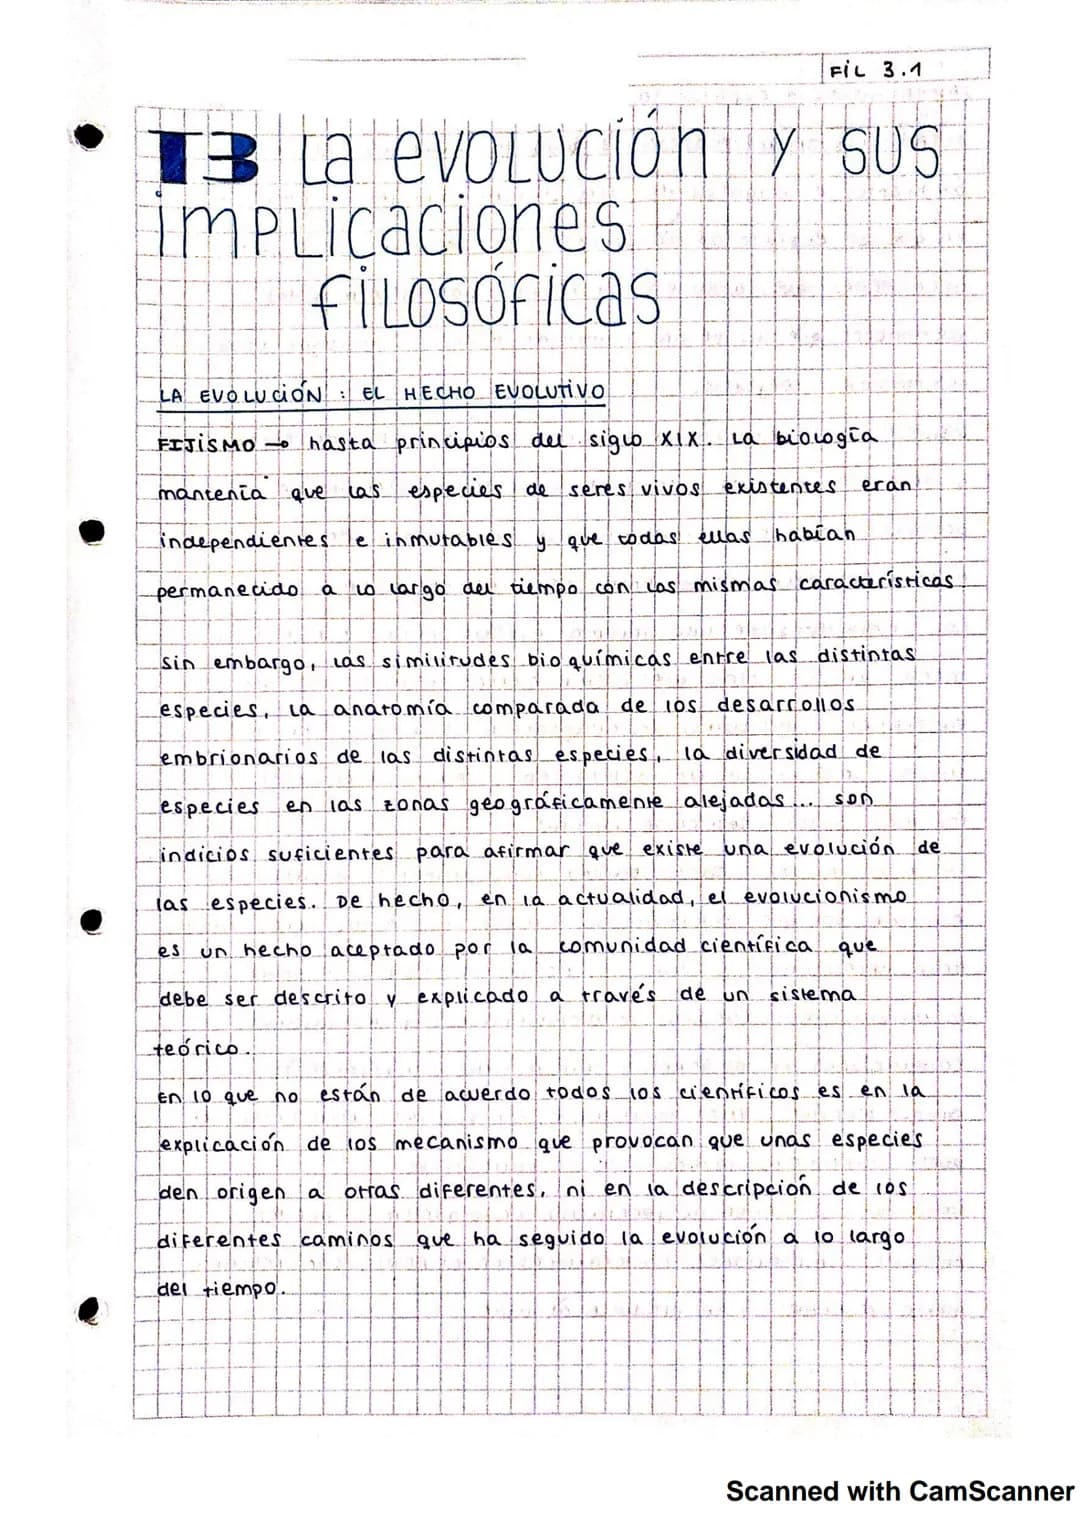 FIL 3.1
T3 La evolución y sus
implicaciones
filosóficas
LA EVOLUCIÓN : EL HECHO EVOLUTIVO
FIJISMO → hasta principios del siglo XIX. La biología
mantenía que las especies de seres vivos existentes eran
independientes e inmutables y que todas ellas habían
permanecido a lo largo del tiempo con las mismas características
sin embargo, las similitudes bioquímicas entre las distintas
especies, la anatomía comparada de los desarrollos
embrionarios de las distintas especies, la diversidad de
especies en las zonas geográficamente alejadas... son
indicios suficientes para afirmar que existe una evolución de
las especies. De hecho, en la actualidad, el evolucionismo
es un hecho aceptado por la comunidad científica que
debe ser descrito y explicado a través de un sistema
teórico.
En lo que no están de acuerdo todos los científicos es en la
explicación de los mecanismo que provocan que unas especies
den origen a otras diferentes, ni en la descripción de los
diferentes caminos que ha seguido la evolución a lo largo
del tiempo.
Scanned with CamScanner